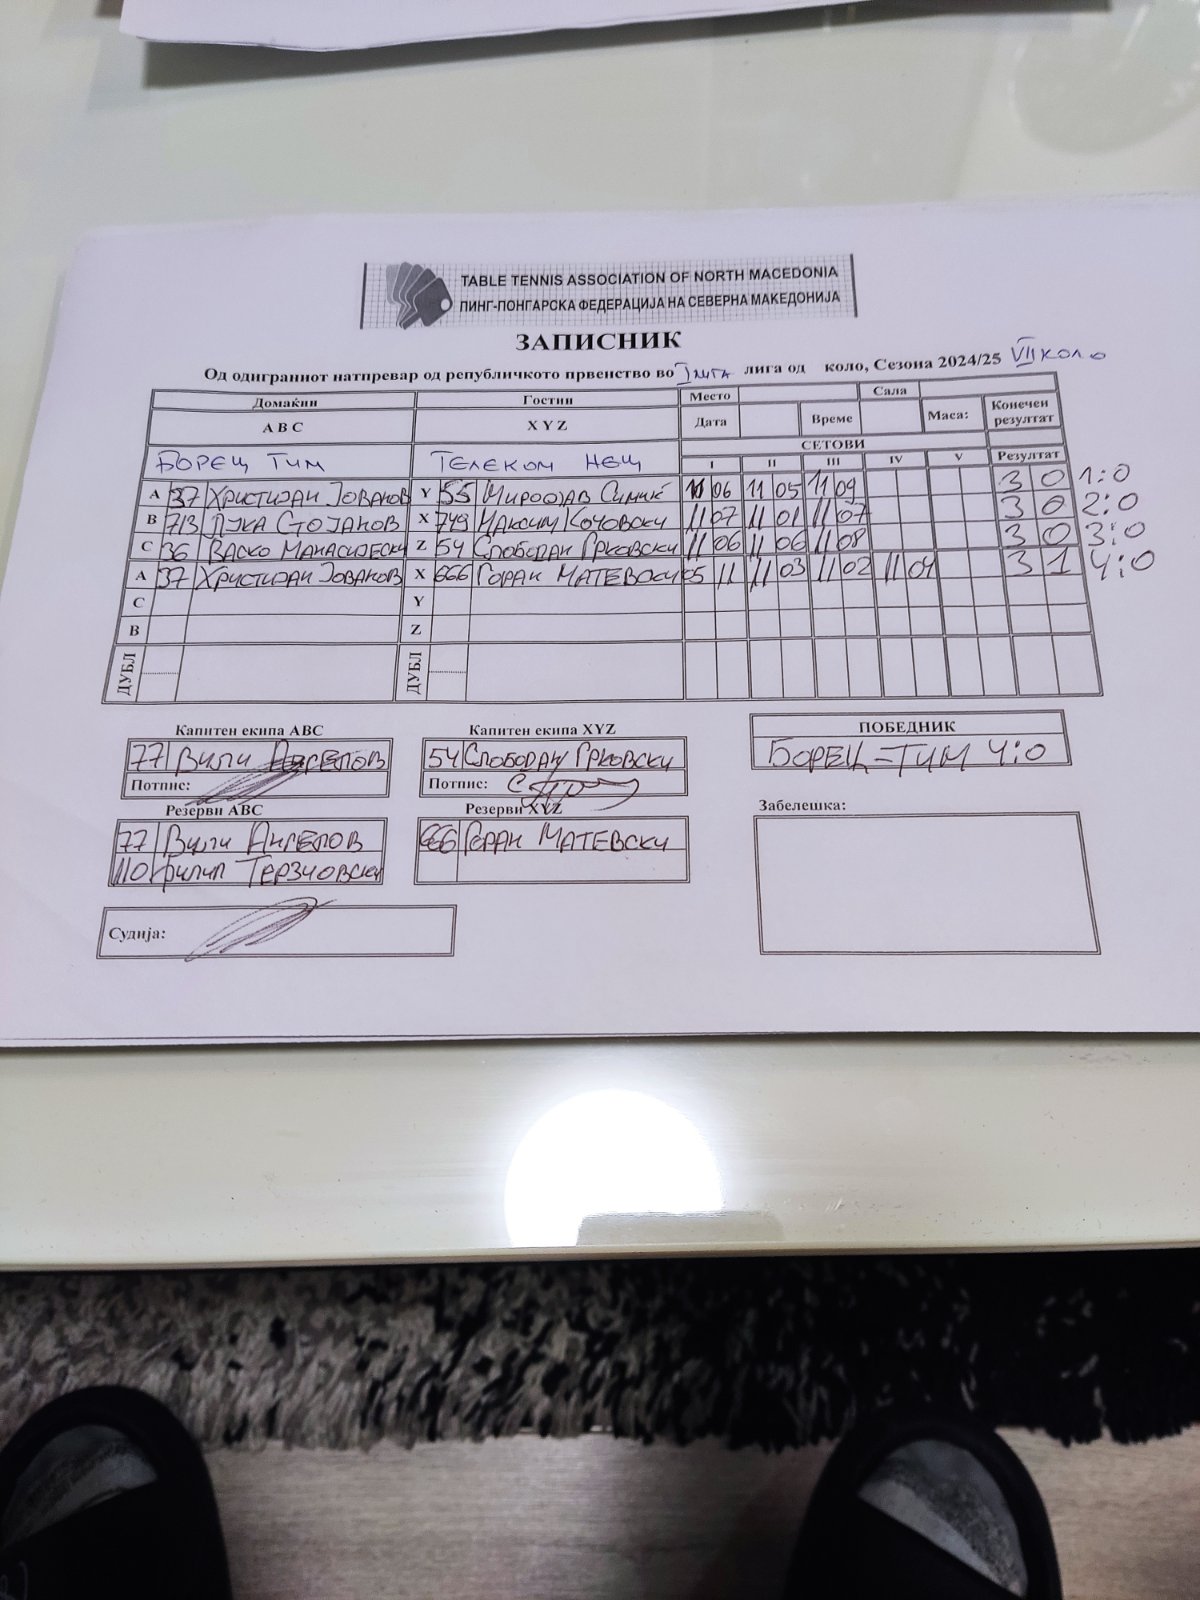 TABLE TENNIS ASSOCIATION OF NORTH MACEDONIA
ПИНГ-ПОНГАРСКА ФЕДЕРАЦИЈА НА СЕВЕРНА МАКЕДОНИЈА
ЗАПИСНИК
Од одиграниот натпревар од републичкото првенство во I лига лига од коло, Сезона 2024/25 VII коло
Домаќин Гостин Место Сала
А В С X Y Z Дата Време Маса: Конечен резултат
СЕТОВИ
БОРЕЦ ТИМ ТЕЛЕКОМ НЕЦ I II III IV V Резултат
А 37 ХРИСТИЈАН ЈОВАНОВ Y 55 МИРОСЈАВ СИМИЌ 11 06 11 05 11 09 3 0 1:0
В 713 ЛУКА СТОЈАНОВ X 749 МАКСИМ КОЧОВСКИ 11 07 11 01 11 07 3 0 2:0
С 36 ВАСКО МАНАСИЈЕСКИ Z 54 СЛОБОДАН ГРКОВСКИ 11 06 11 06 11 08 3 0 3:0
А 37 ХРИСТИЈАН ЈОВАНОВ X 666 ГОРАН МАТЕВСКИ 05 11 11 03 11 02 11 04 3 1 4:0
С Y
В Z
ДУБЛ ДУБЛ
Капитен екипа ABC Капитен екипа XYZ ПОБЕДНИК
77 ВИЛИ АНГЕЛОВ 54 СЛОБОДАН ГРКОВСКИ БОРЕЦ-ТИМ 4:0
Потпис: Потпис:
Резерви ABC Резерви XYZ Забелешка:
77 ВИЛИ АНГЕЛОВ 666 ГОРАН МАТЕВСКИ
110 ФИЛИП ТЕРЗИОВСКИ
Судија: